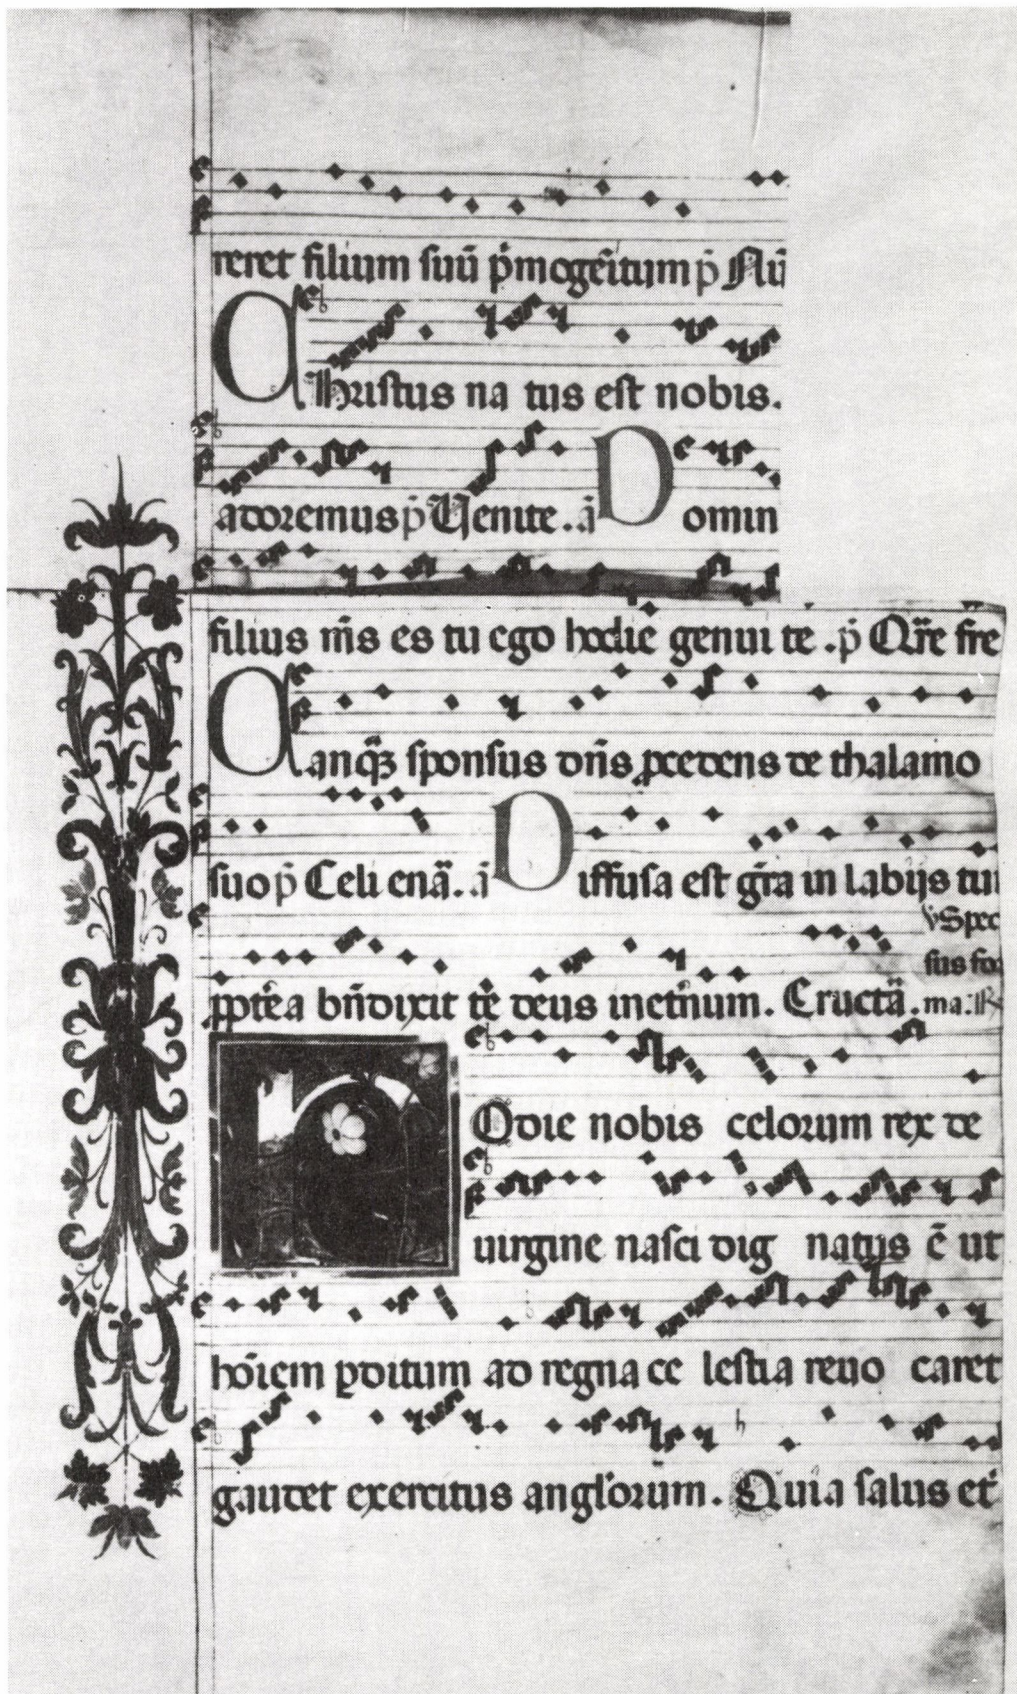 reret filium suū p̄mogēitum p̄ Nū
Christus na tus est nobis.
adoremus p̄ Uenite. ā Domin
filius m̄s es tu ego hodie genui te . p̄ Qr̄e fre
Tanq̄ꝫ sponsus dn̄s ꝓcedens de thalamo
suo p̄ Celi enā. ā Diffusa est gr̄a in labijs tui
℣ Spec
sus fo
ꝓpt̄ea bn̄dixit te deus inet̄num. Eructā. ma. ℟
HOdie nobis celorum rex de
uirgine nasci dig natus ē ut
hōiem ꝑditum ad regna ce lestia reuo caret
gaudet exercitus angl'orum. Quia salus et̄